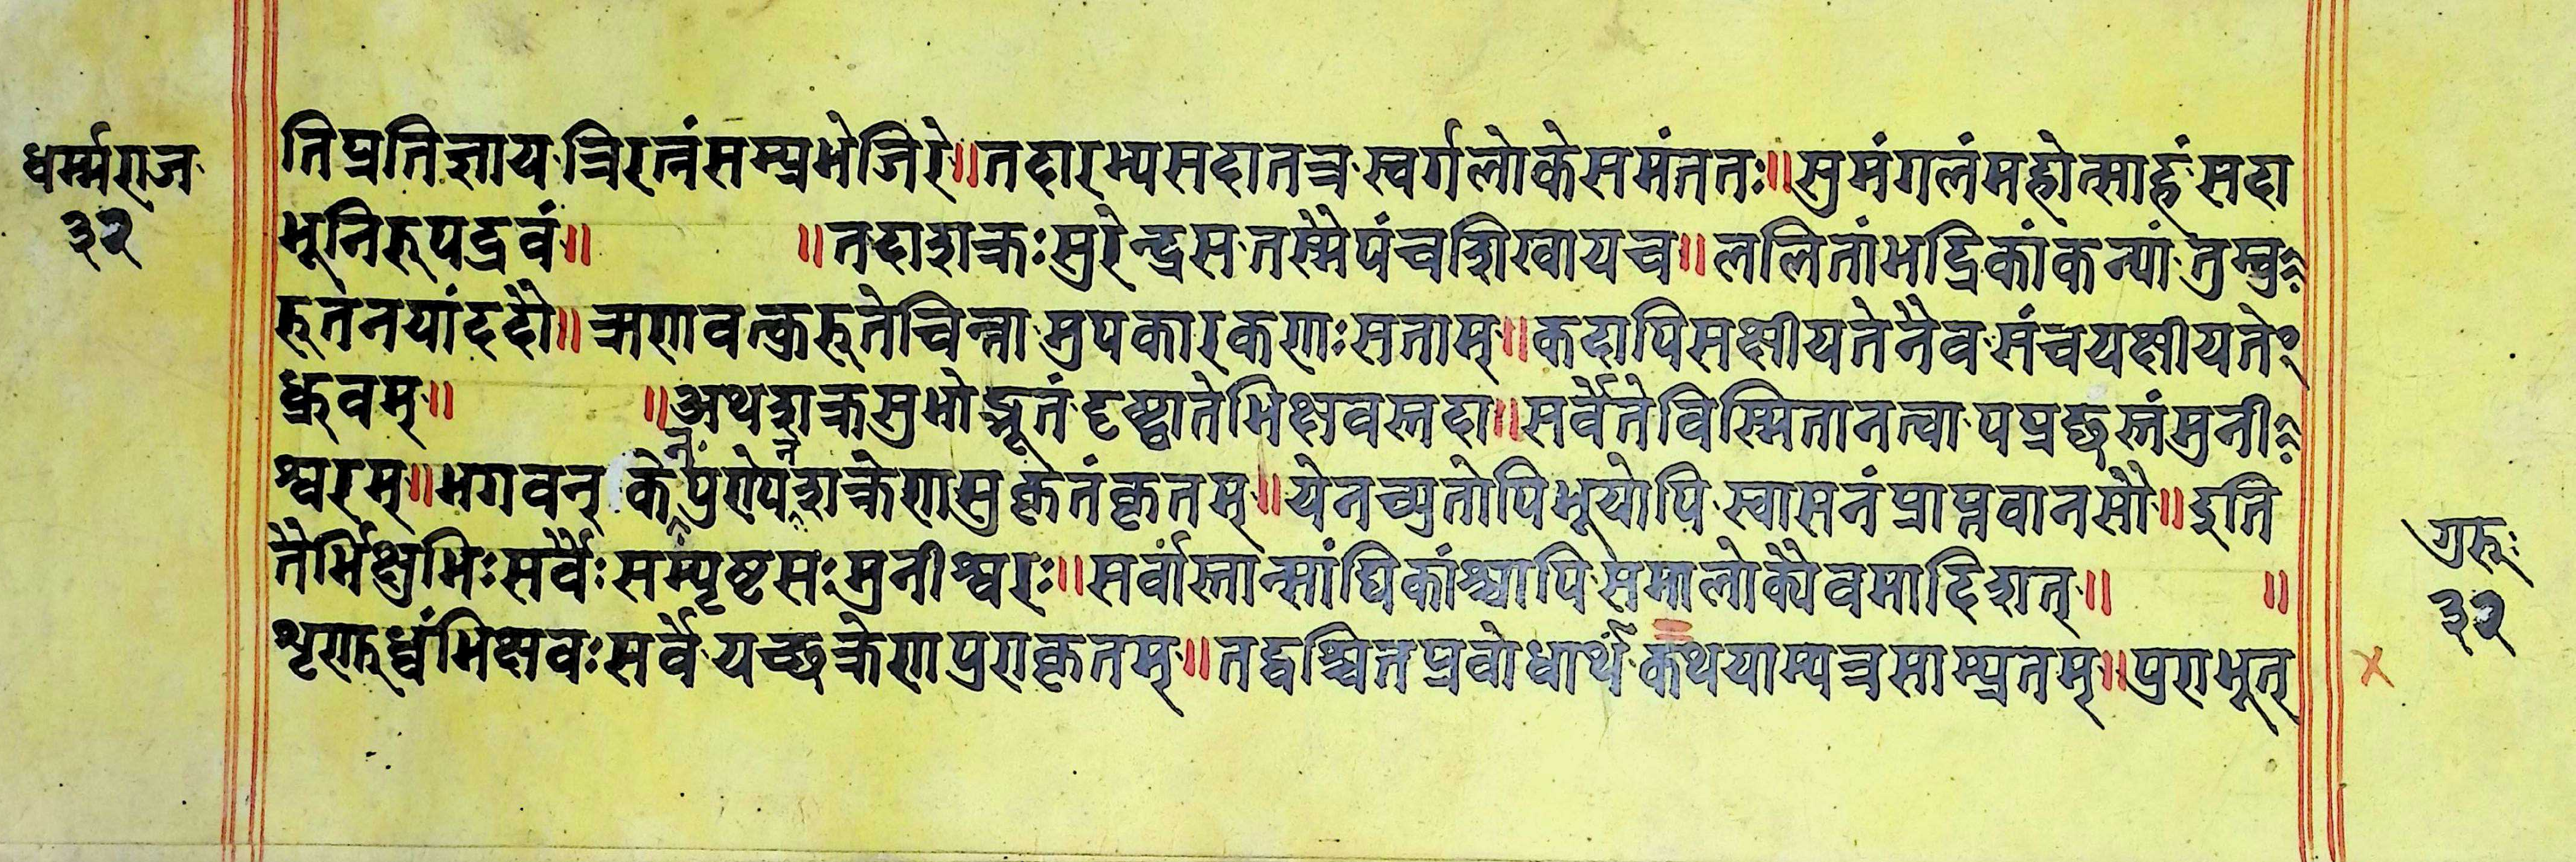 धर्म्मराज
३२
तिप्रतिज्ञाय त्रिरत्नंसम्प्रभेजिरे॥तदारभ्यसदातत्र स्वर्गलोकेसमंततः॥सुमंगलंमहोत्साहं सदा
भूनिरूपद्रवं॥ ॥तदाशक्रःसुरेन्द्रस तस्मैपंचशिखायच॥ललितांभद्रिकांकन्यां तुम्बु
रूतनयांददौ॥ मुपकारकणाःसताम्॥कदापिसक्षीयतेनैव संचयक्षीयते
ध्रुवम्॥ ॥अथशक्रसुभोद्भूतं दृष्ट्वातेभिक्षवस्तदा॥सर्वेतेविस्मितानत्वा पप्रच्छुस्तंमुनी
श्वरम्॥भगवन् के पुण्येशक्रेणसुकृतंकृतम्॥येनच्युतोपिभूयोपि स्वासनंप्राप्नवानसौ॥इति
तैर्भिक्षुभिःसर्वैःसम्पृष्टसःमुनीश्वरः॥सर्वांस्तान्सांघिकांश्चापि समालोक्यैवमादिशत्॥ ॥
शृणुध्वंभिक्षवःसर्वे यच्छक्रेणपुराकृतम्॥तद्वश्चित्तप्रवोधार्थं कथयाम्यत्रसाम्प्रतम्॥पुराभूत्
गुरूः
३२